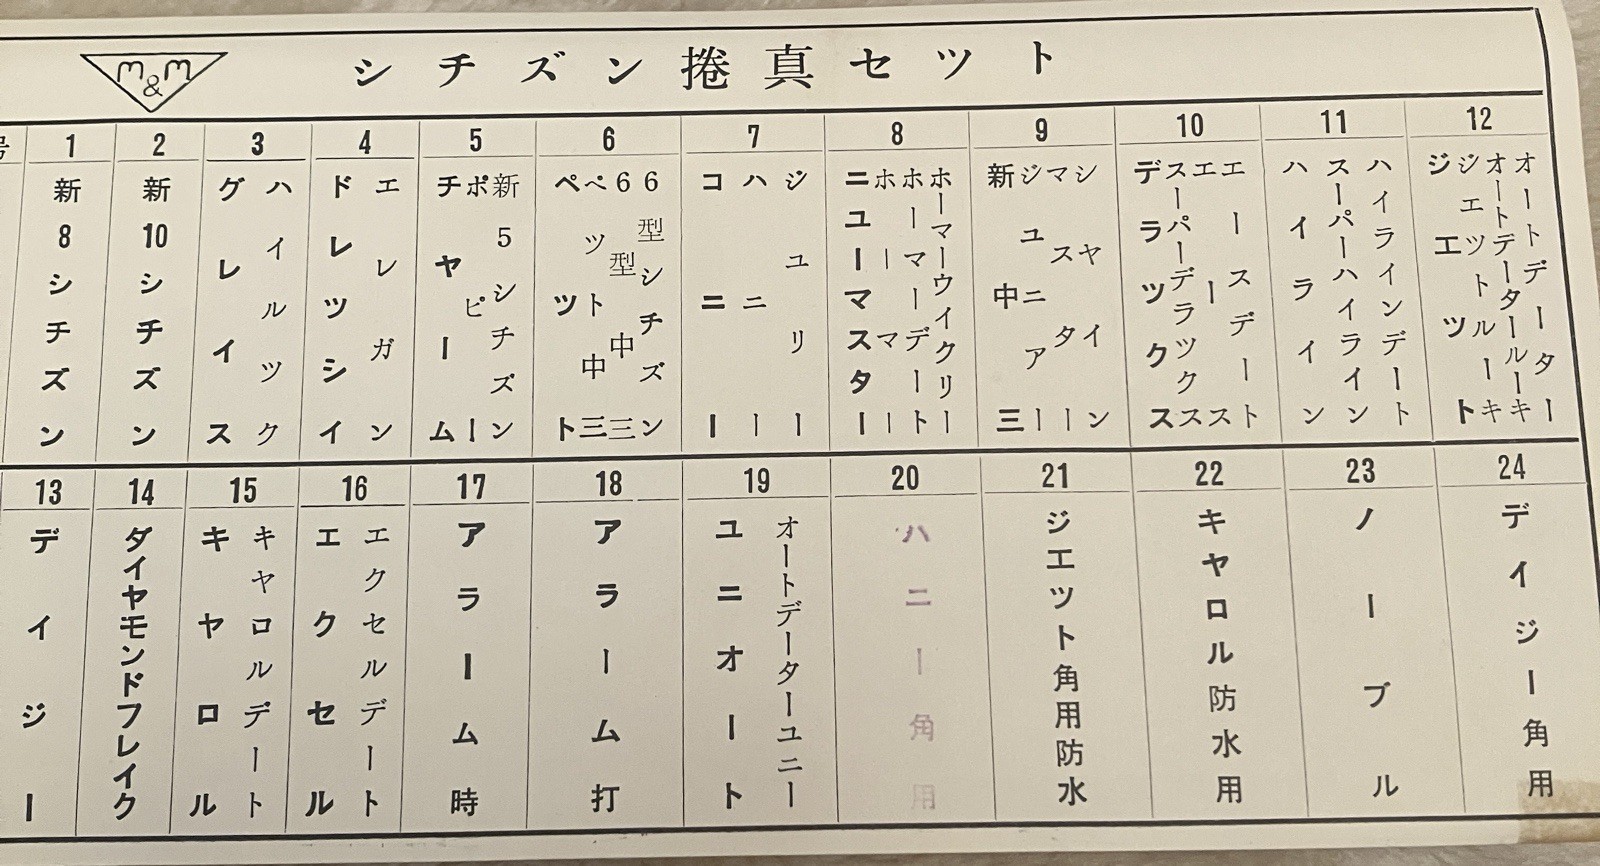 m&m
シチズン捲真セット
号
1
新8シチズン
2
新10シチズン
3
ハイルツク
グレイス
4
エレガン
ドレツシイ
5
新5シチズン
ポピー
チヤーム
6
6型シチズン
6型中三
ペット中三
ペツト
7
ジユリー
ハニー
コニー
8
ホーマーウイクリー
ホーマーデート
ホーマー
ニユーマスター
9
シヤイン
マスター
ジユニアー
新中三
10
エースデート
エース
スーパーデラックス
デラツクス
11
ハイラインデート
スーパーハイライン
ハイライン
12
オートデーター
オートデータールーキー
ジエツトルーキー
ジエツト
13
デイジー
14
ダイヤモンドフレイク
15
キヤロルデート
キヤロル
16
エクセルデート
エクセル
17
アラーム時
18
アラーム打
19
オートデーターユニー
ユニオート
20
ハニー角用
21
ジエツト角用防水
22
キヤロル防水用
23
ノーブル
24
デイジー角用